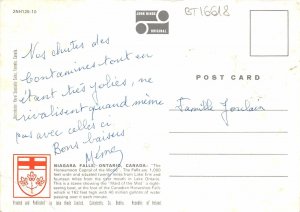 2NH126-10
JOHN HINDE
ORIGINAL
BT16618
Nos chutes des
Contamines tout en
étant très jolies, ne
rivalisent quand même
pas avec celles ci
Bons baisers
Mémé
POST CARD
Famille Jourdain
NIAGARA FALLS, ONTARIO, CANADA. "The
Honeymoon Capital of the World". The Falls are 1,000
feet wide and situated twenty miles from Lake Erie and
fourteen miles from the Lake Ontario.
This is a scene showing the "Maid of the Mist" a sight-
seeing boat, at the foot of the Canadian Horseshoe Falls
which is 162 feet high with 40 million gallons of water
flowing over per minute.
Printed and Published by John Hinde Limited, Cabinteely, Co. Dublin, Republic of Ireland